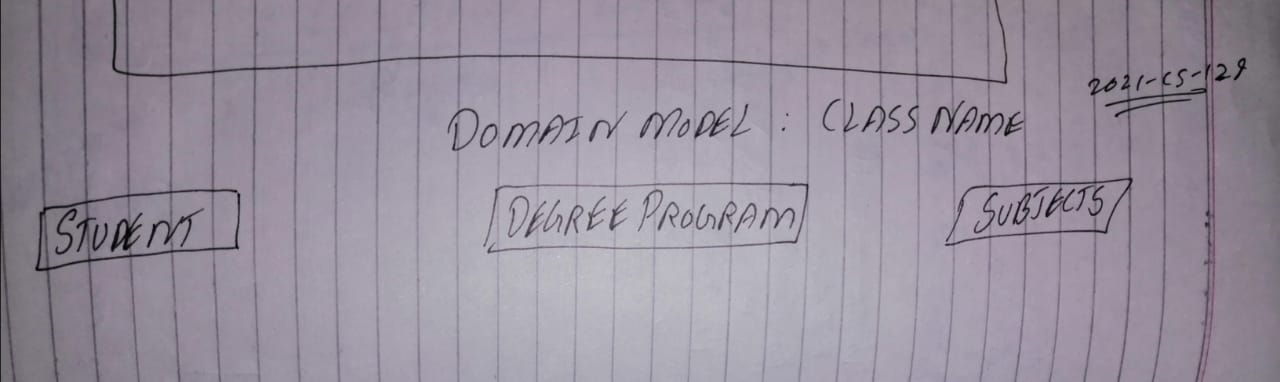 2021-CS-129
DOMAIN MODEL : CLASS NAME
STUDENT
DEGREE PROGRAM
SUBJECTS